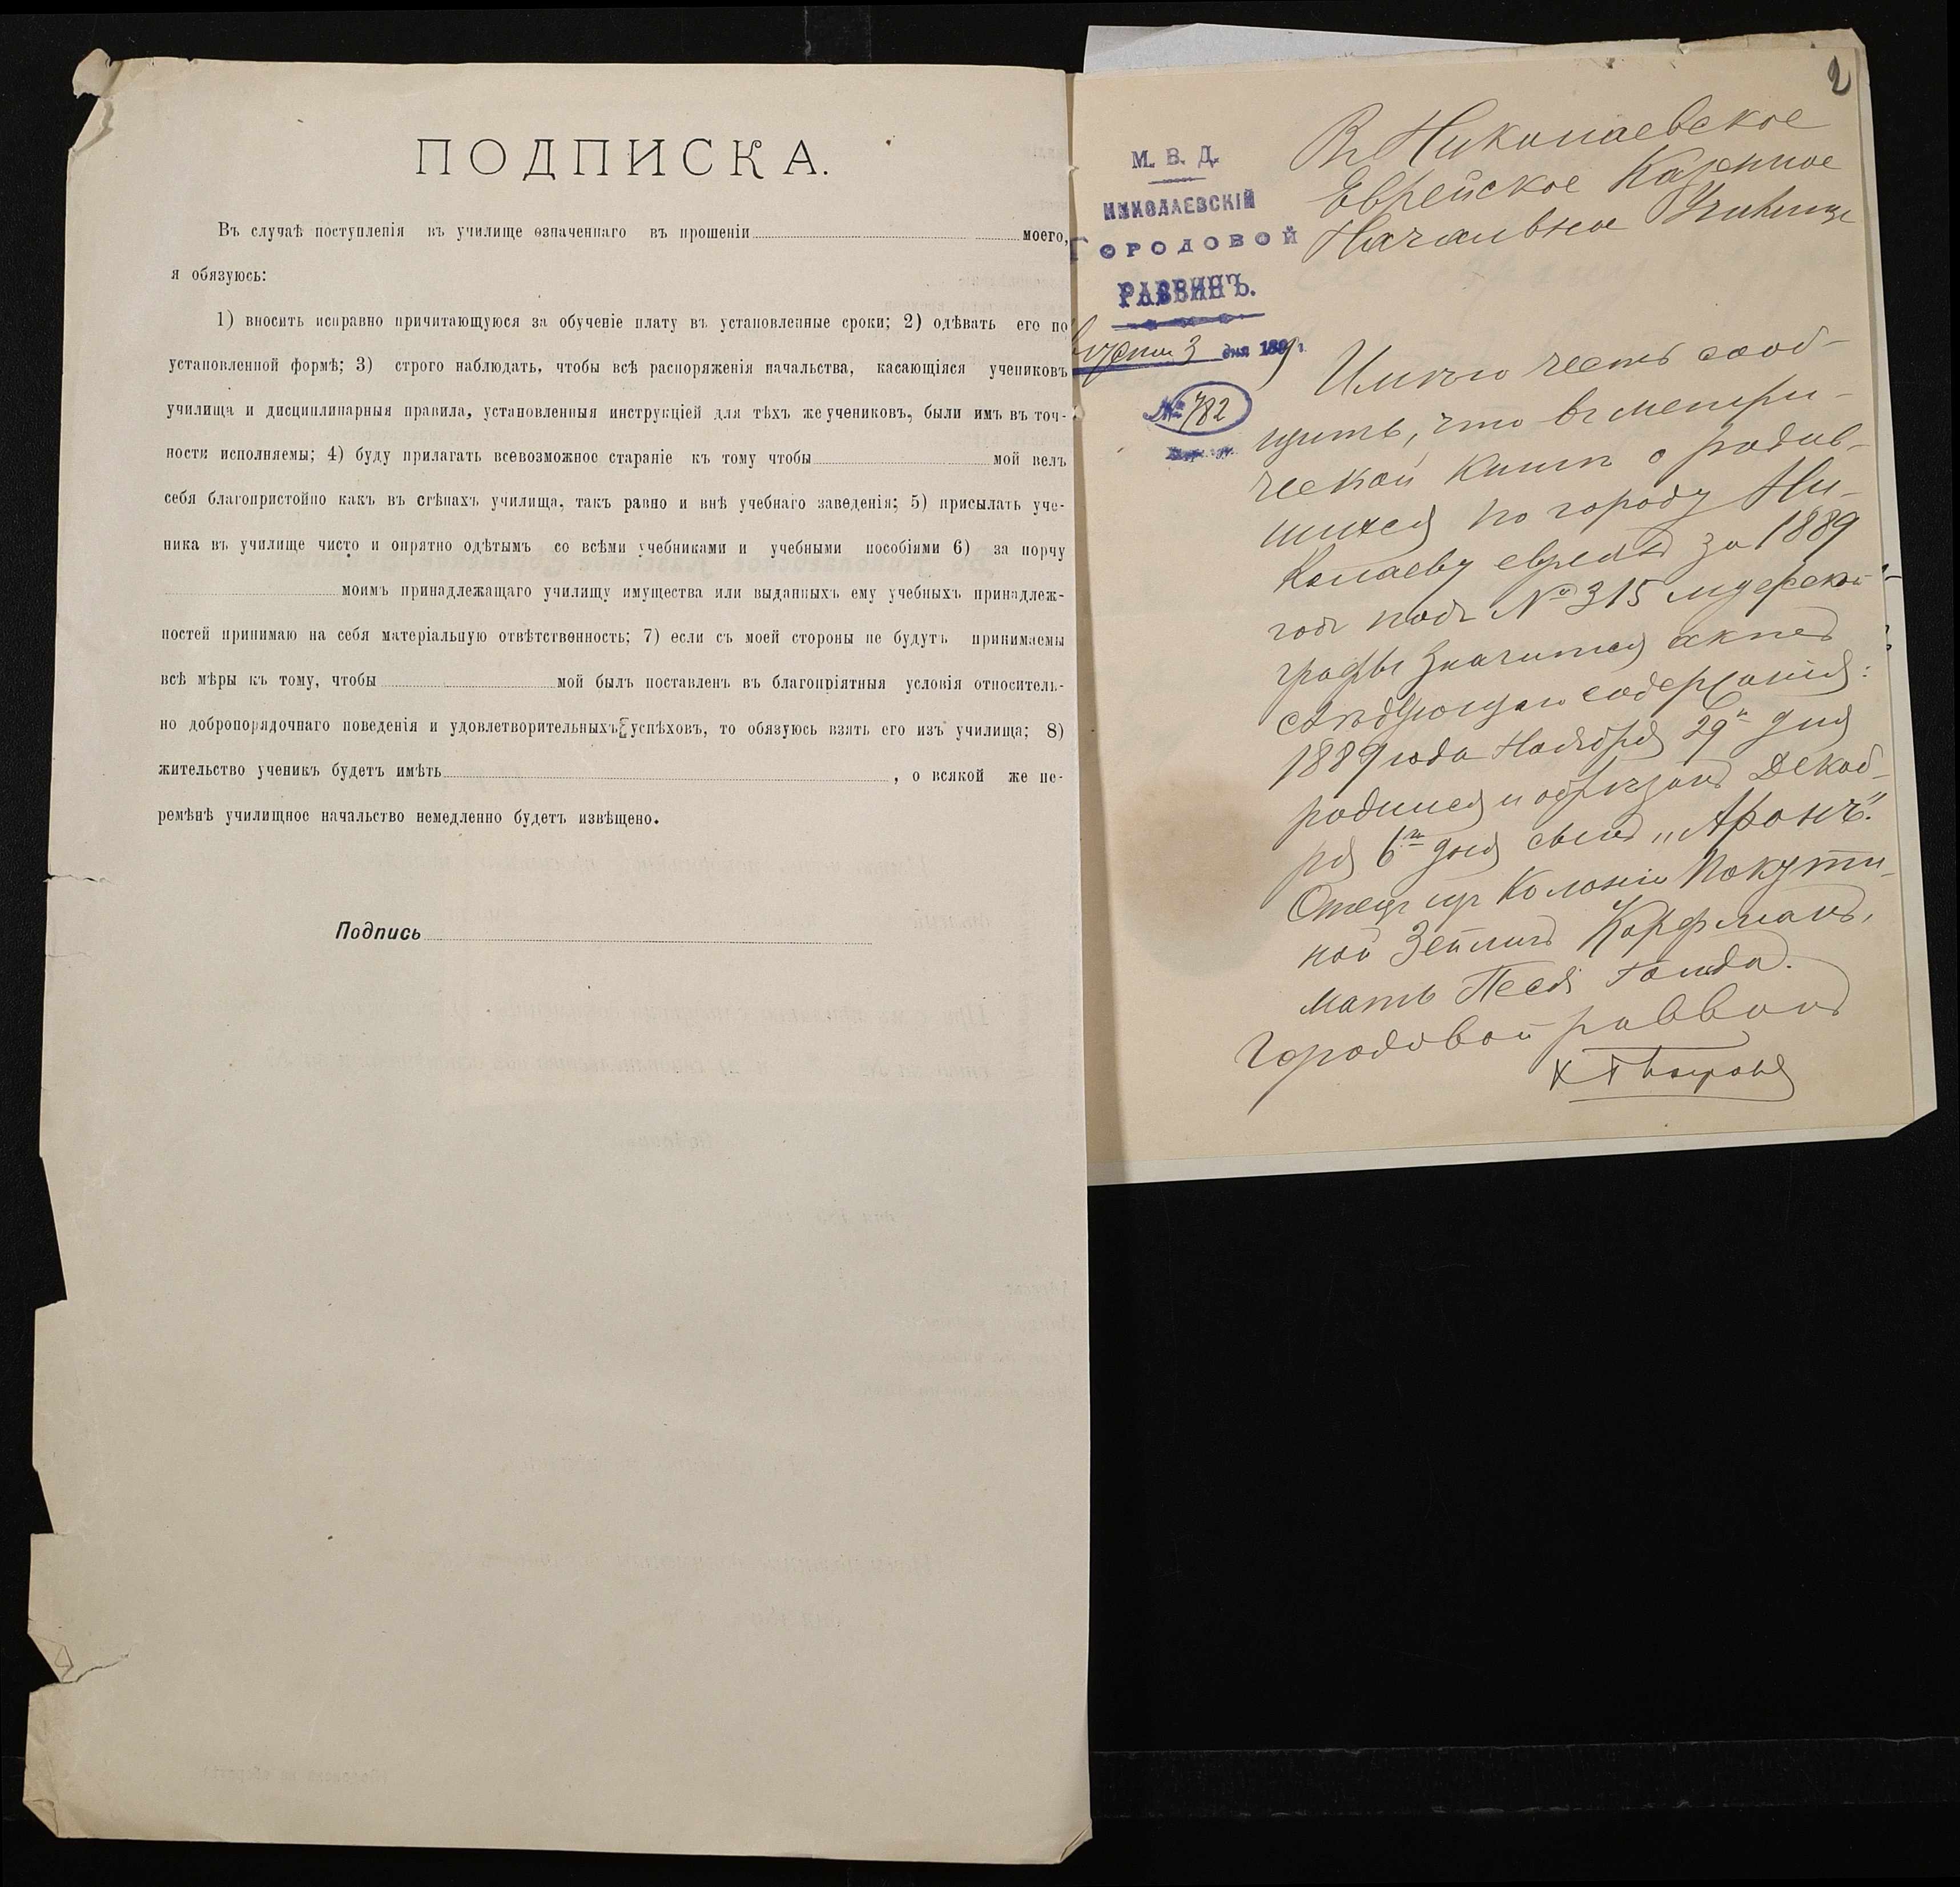 ПОДПИСКА.
Въ случаѣ поступленія въ училище означеннаго въ прошеніи моего,
я обязуюсь:
1) вносить исправно причитающуюся за обученіе плату въ установленные сроки; 2) одѣвать его по
установленной формѣ; 3) строго наблюдать, чтобы всѣ распоряженія начальства, касающіяся учениковъ
училища и дисциплинарныя правила, установленныя инструкціей для тѣхъ же учениковъ, были имъ въ точ-
ности исполняемы; 4) буду прилагать всевозможное стараніе къ тому чтобы мой велъ
себя благопристойно какъ въ стѣнахъ училища, такъ равно и внѣ учебнаго заведенія; 5) присылать уче-
ника въ училище чисто и опрятно одѣтымъ со всѣми учебниками и учебными пособіями 6) за порчу
моимъ принадлежащаго училищу имущества или выданныхъ ему учебныхъ принадлеж-
ностей принимаю на себя матеріальную отвѣтственность; 7) если съ моей стороны не будутъ принимаемы
всѣ мѣры къ тому, чтобы мой былъ поставленъ въ благопріятныя условія относитель-
но добропорядочнаго поведенія и удовлетворительныхъ успѣховъ, то обязуюсь взять его изъ училища; 8)
жительство ученикъ будетъ имѣть , о всякой же пе-
ремѣнѣ училищное начальство немедленно будетъ извѣщено.
Подпись
2
М. В. Д.
НИКОЛАЕВСКІЙ
ГОРОДОВОЙ
РАВВИНЪ.
3 дня 189 г.
№ 782
Въ Николаевское
Еврейское Казенное
Начальное Училище
Имѣю честь сооб-
щить, что въ метри-
ческой книгѣ о родив-
шихся по городу Ни-
колаеву евреяхъ за 1889
годъ подъ № 315 мужской
графы значится актъ
слѣдующаго содержанія:
1889 года Ноября 29го дня
родился и обрѣзанъ Декаб-
ря 6го дня сынъ „Аронъ".
Отецъ изъ Колоніи Покути-
ной Зейликъ Корфманъ,
мать Песя Голда.
Городовой раввинъ